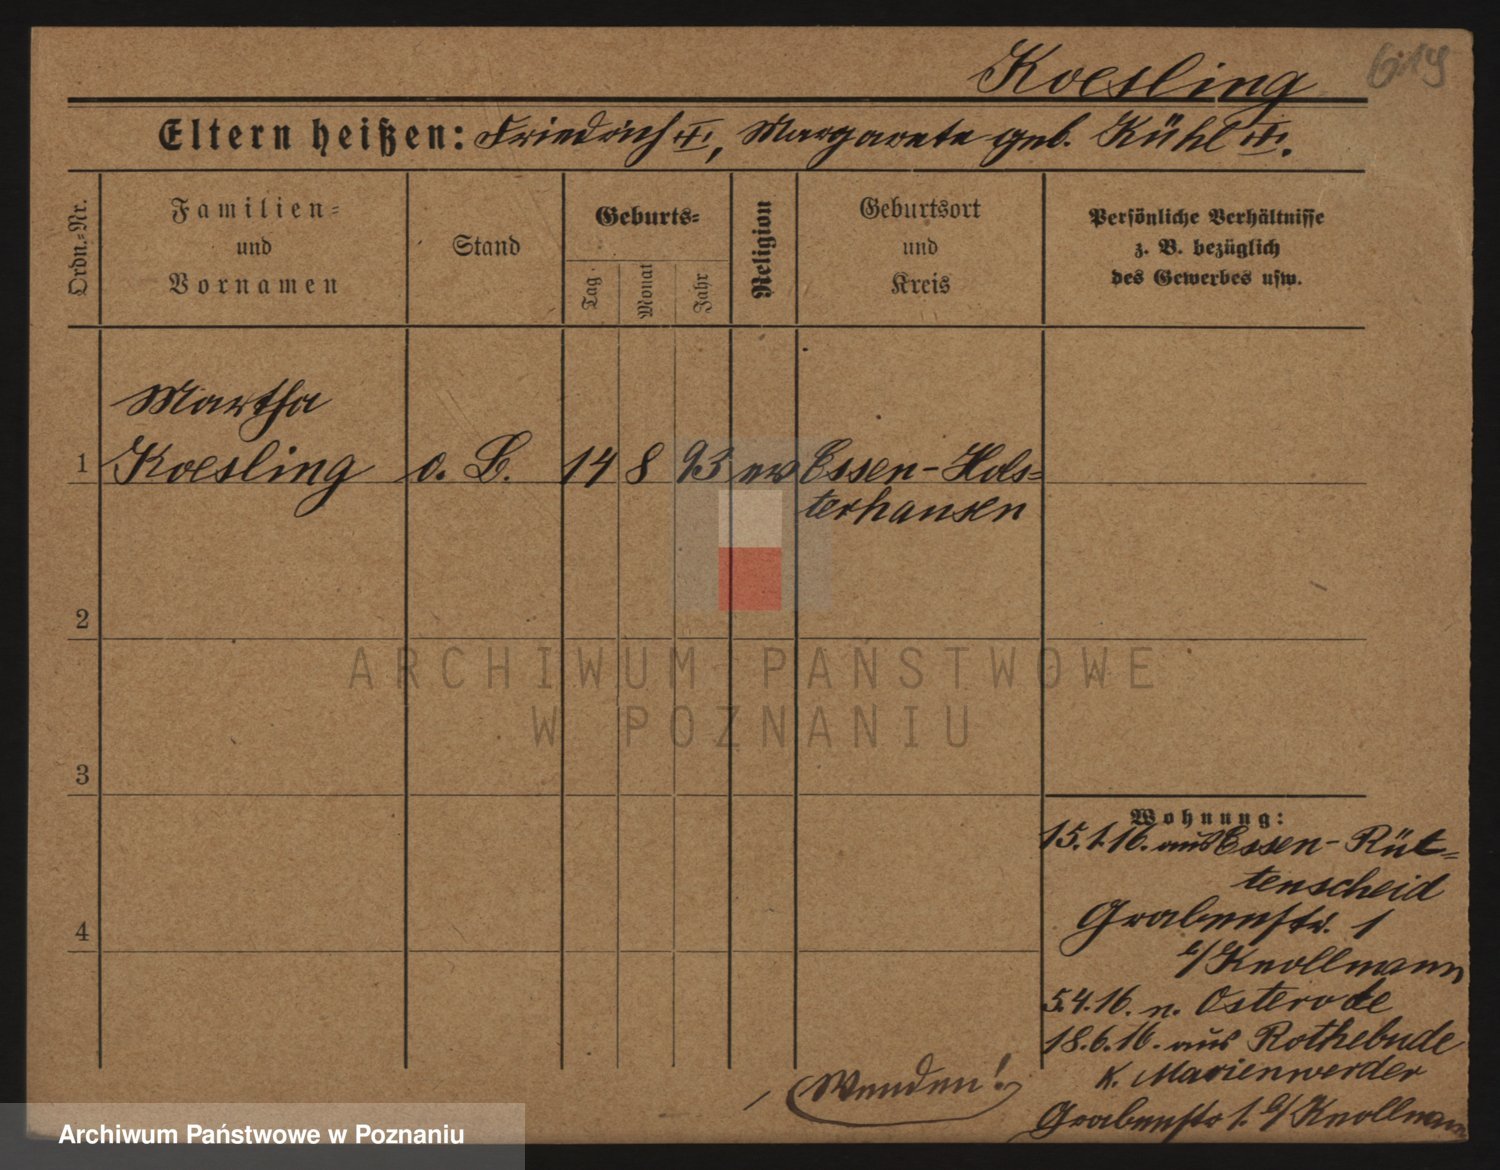 Koesling
Eltern heißen: Friedrich, Margarete geb. Kühl.
Ordn.-Nr.
Familien-
und
Vornamen
Stand
Geburts-
Tag
Monat
Jahr
Religion
Geburtsort
und
Kreis
Persönliche Verhältnisse
z. B. bezüglich
des Gewerbes usw.
Martha
1 Koesling o. B. 14 8 93 ev Essen-Hols-
terhausen
2
ARCHIWUM PAŃSTWOWE
W POZNANIU
3
Wohnung:
15.1.16. aus Essen-Rüt-
tenscheid
4
Grabenstr. 1
b/ Knollmann
5.4.16. n. Osterode
18.6.16. aus Rothebude
K. Marienwerder
Grabenstr 1. b/ Knollmann
Wenden!
Archiwum Państwowe w Poznaniu